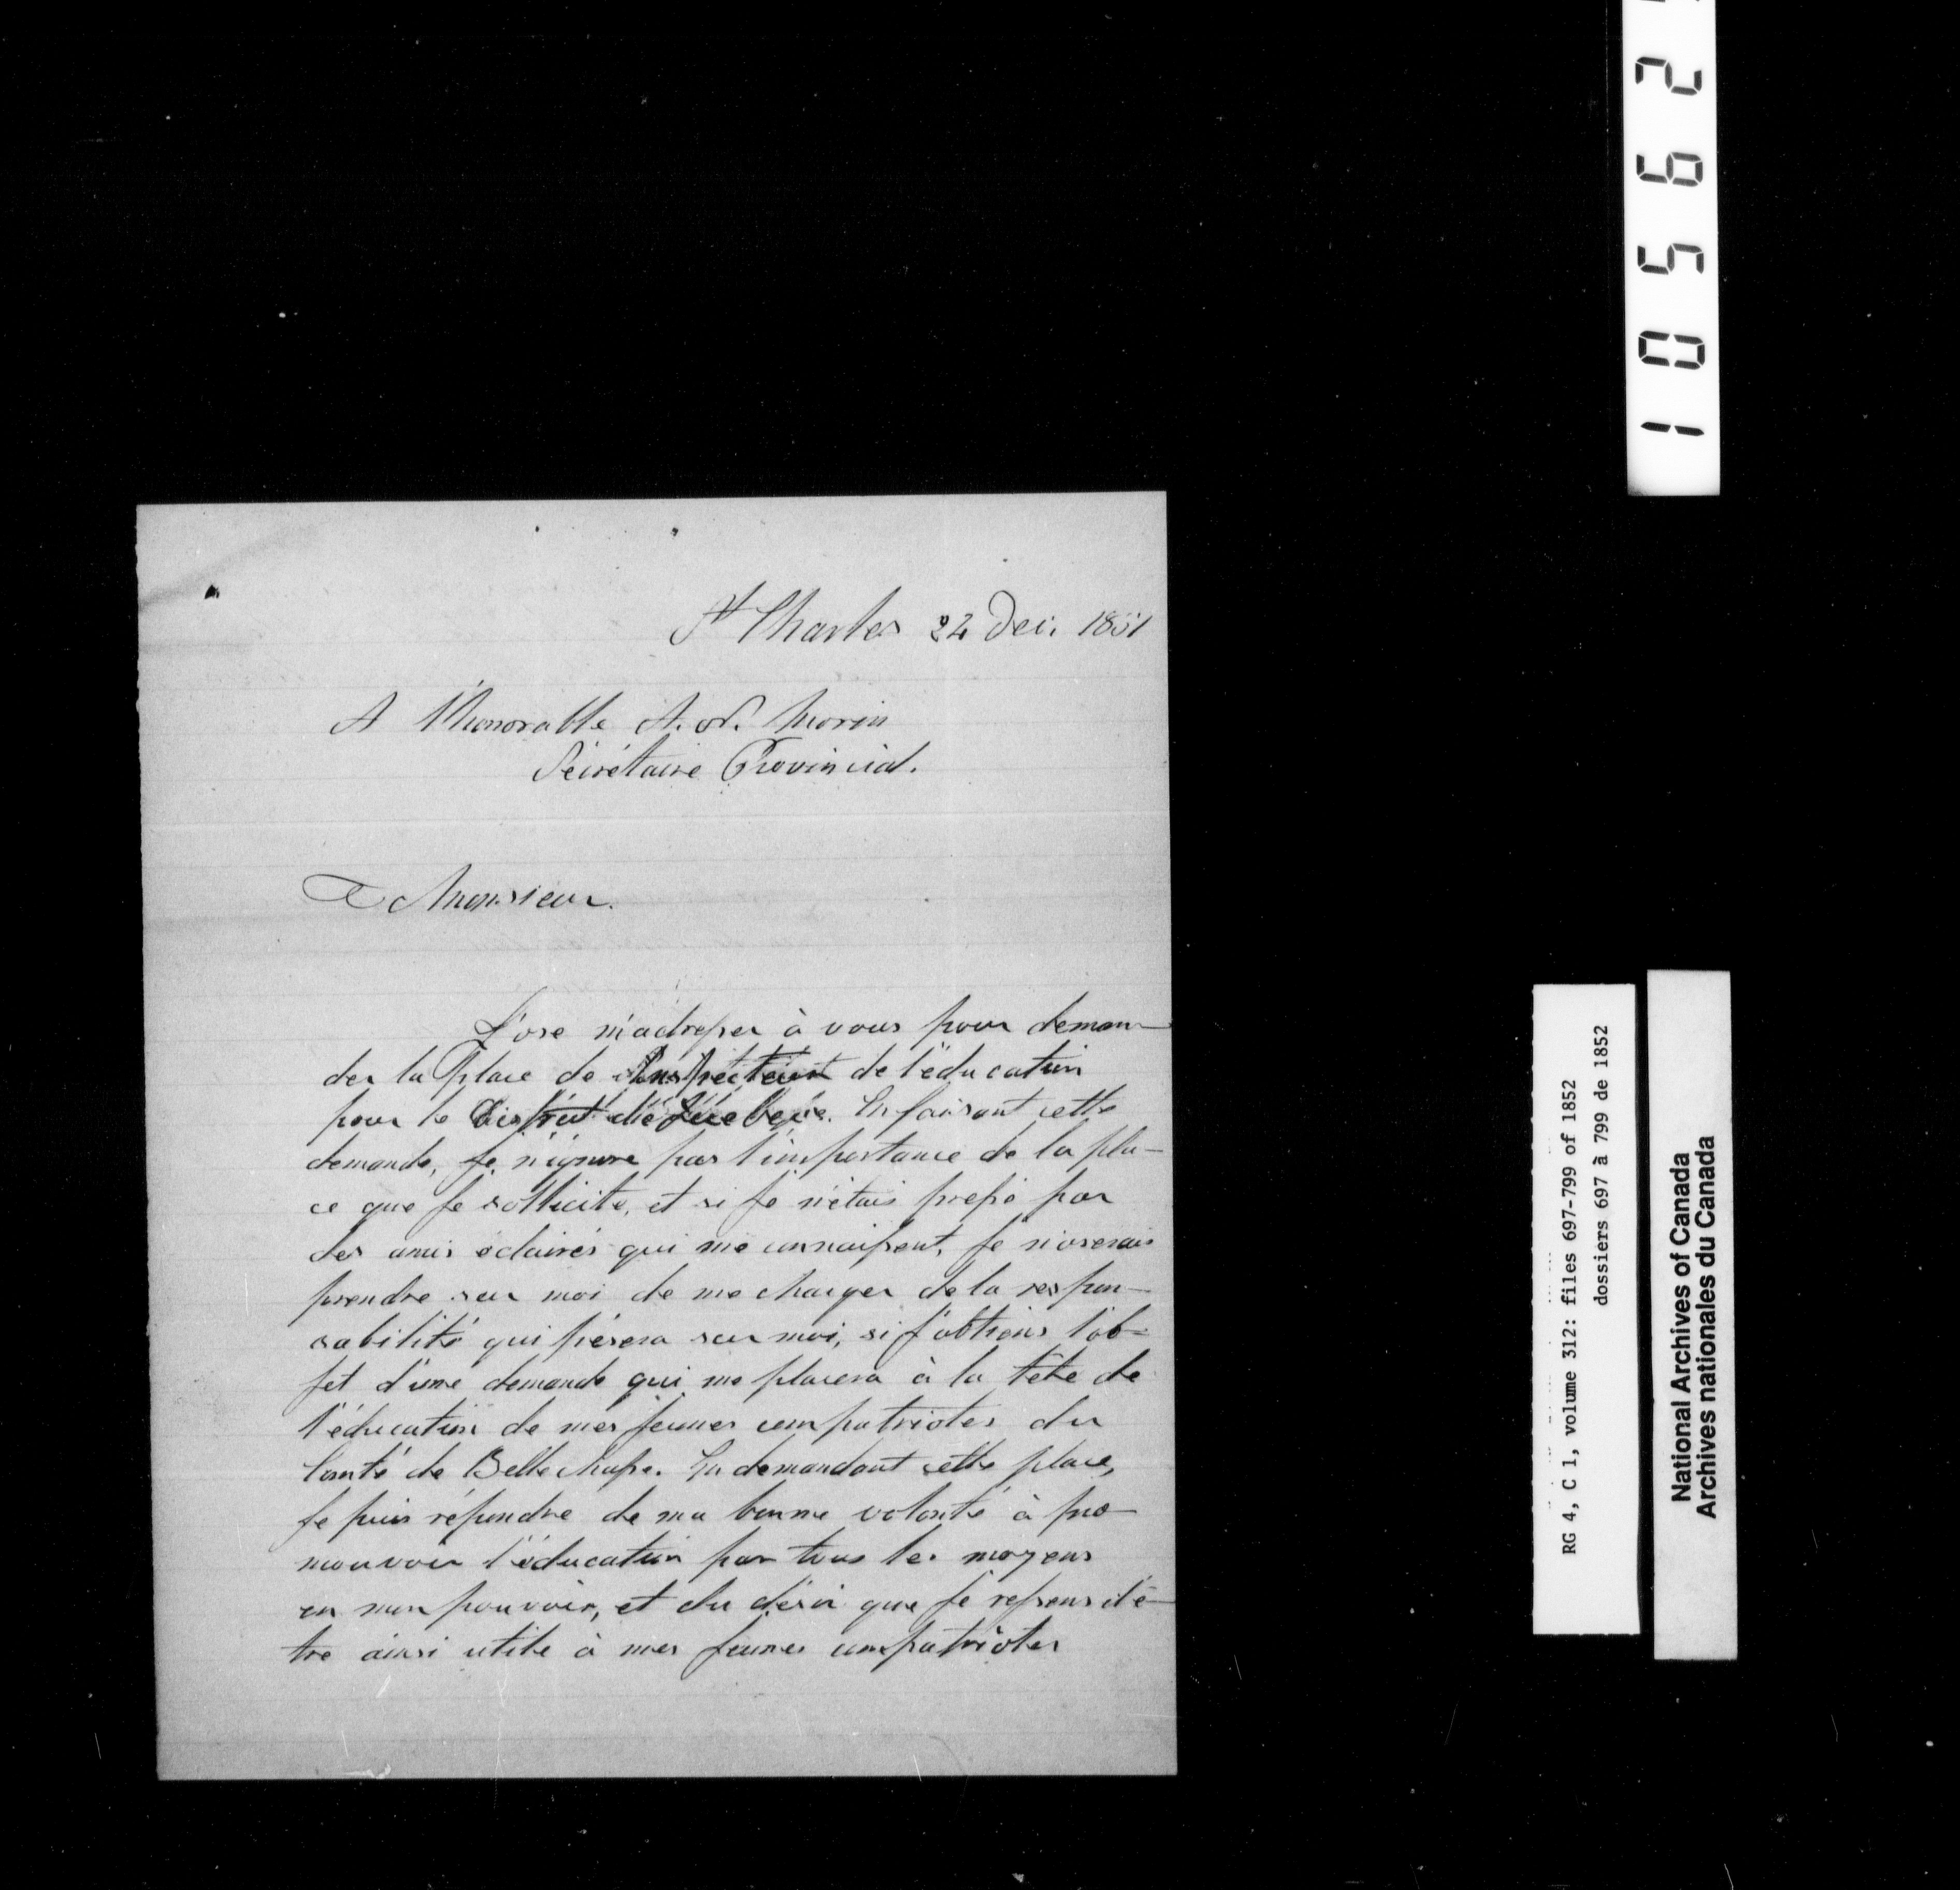 St Charles 24 Dec. 1851
A l'Honorable A. N. Morin
Sécrétaire Provincial.
Monsieur.
J'ose m'adresser à vous pour deman-
der la Place de Inspecteur de l'éducation
pour le District de Quebec. En faisant cette
demande, je n'ignore pas l'importance de la pla-
ce que je sollicite, et si je n'étais pressé par
des amis éclairés qui me connaissent, je n'oserais
prendre sur moi de me charger de la respon-
sabilité qui pésera sur moi, si j'obtiens l'ob-
jet d'une demande qui me placera à la tête de
l'éducation de mes jeunes compatriotes du
Comté de Bellechasse. En demandant cette place,
je puis répondre de ma bonne volonté à pro-
mouvoir l'éducation par tous les moyens
en mon pouvoir, et du désir que je ressens d'ê-
tre ainsi utile à mes jeunes compatriotes
1 0 5 6 2
RG 4, C 1, volume 312: files 697-799 of 1852
dossiers 697 à 799 de 1852
National Archives of Canada
Archives nationales du Canada